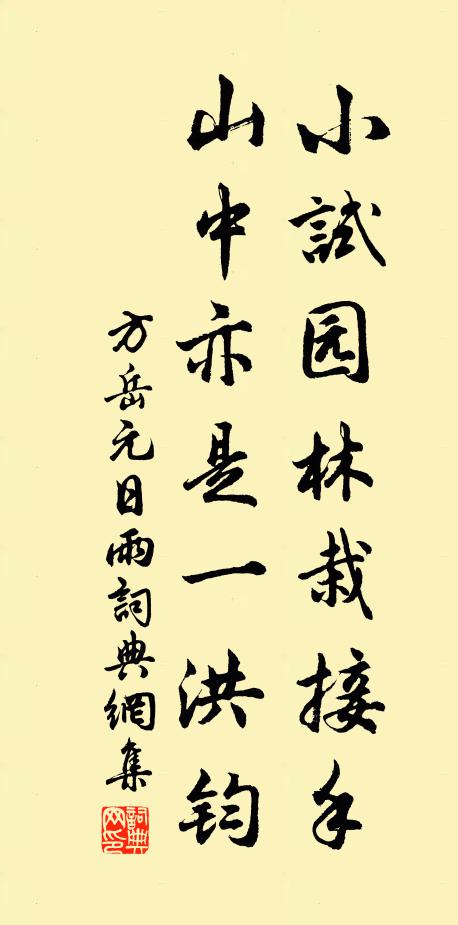 小試园林栽接手
山中亦是一洪钧
方岳元日雨詞典網集
詞典网印